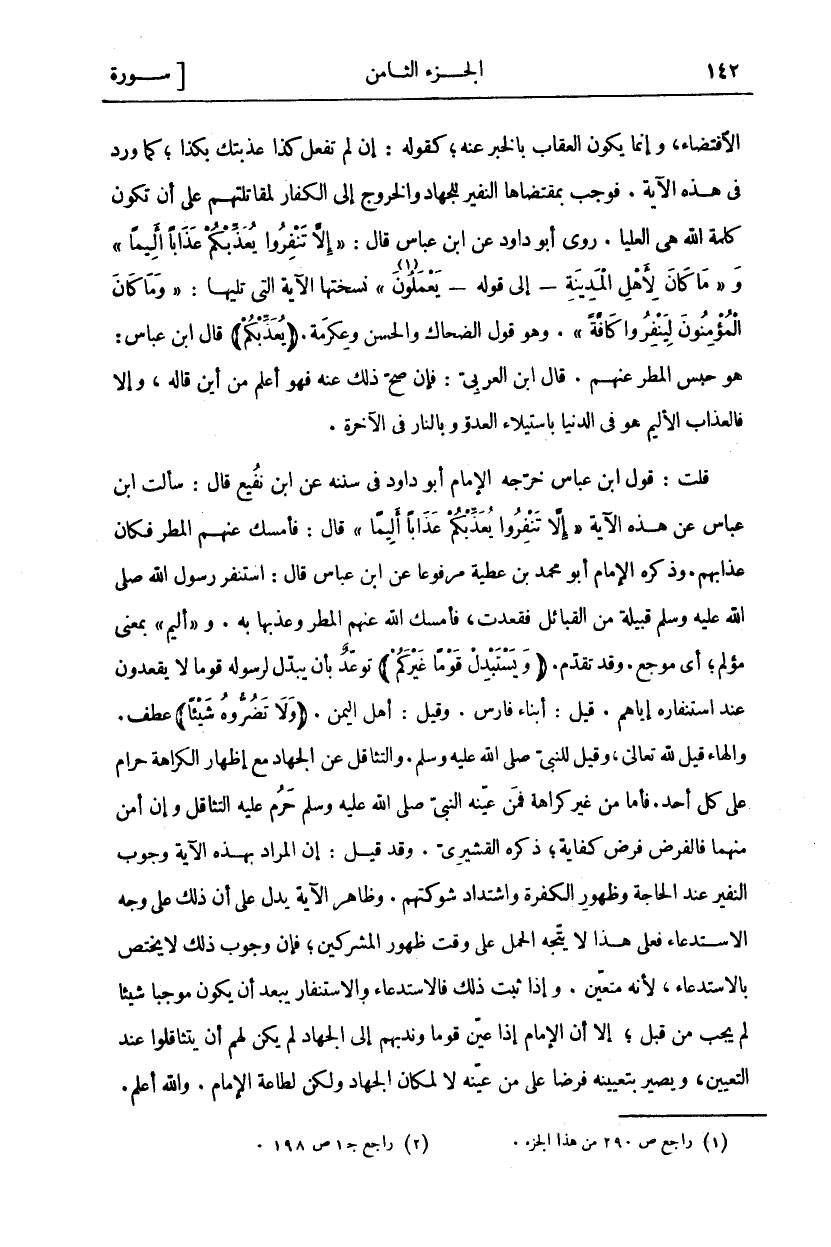 ١٤٢ الجزء الثامن [ سورة
الاقتضاء، وإنما يكون العقاب بالخبر عنه؛ كقوله : إن لم تفعل كذا عذبتك بكذا ؛ كما ورد
فى هذه الآية . فوجب بمقتضاها النفير للجهاد والخروج إلى الكفار لمقاتلتهم على أن تكون
كلمة الله هى العليا . روى أبو داود عن ابن عباس قال : « إِلَّا تَنْفِرُوا يُعَذِّبْكُمْ عَذَاباً أَلِيماً »
وَ « مَا كَانَ لِأَهْلِ الْمَدِينَةِ — إلى قوله — يَعْمَلُونَ (١) » نسختها الآية التى تليها : « وَمَا كَانَ
الْمُؤْمِنُونَ لِيَنْفِرُوا كَافَّةً » . وهو قول الضحاك والحسن وعِكرَمة . (يُعَذِّبْكُمْ) قال ابن عباس :
هو حبس المطر عنهم . قال ابن العربىّ : فإن صحّ ذلك عنه فهو أعلم من أين قاله ، وإلا
فالعذاب الأليم هو فى الدنيا باستيلاء العدوّ وبالنار فى الآخرة .
قلت : قول ابن عباس خرّجه الإمام أبو داود فى سننه عن ابن نُفَيع قال : سألت ابن
عباس عن هذه الآية « إِلَّا تَنْفِرُوا يُعَذِّبْكُمْ عَذَاباً أَلِيمًا » قال : فأمسك عنهم المطر فكان
عذابهم . وذكره الإمام أبو محمد بن عطية مرفوعا عن ابن عباس قال : استنفر رسول الله صلى
الله عليه وسلم قبيلة من القبائل فقعدت، فأمسك الله عنهم المطر وعذبها به . و «أليم» بمعنى
مؤلم؛ أى موجع . وقد تقدّم . (وَيَسْتَبْدِلْ قَوْمًا غَيْرَكُمْ) توعّدٌ بأن يبدّل لرسوله قوما لا يقعدون
عند استنفاره إياهم . قيل : أبناء فارس . وقيل : أهل اليمن . (وَلَا تَضُرُّوهُ شَيْئًا) عطف .
والهاء قيل لله تعالى ، وقيل للنبىّ صلى الله عليه وسلم . والتثاقل عن الجهاد مع إظهار الكراهة حرام
على كل أحد . فأما من غير كراهة فمَن عيّنه النبىّ صلى الله عليه وسلم حَرُم عليه التثاقل وإن أمن
منهما فالفرض فرض كفاية؛ ذكره القشيرىّ . وقد قيل : إن المراد بهذه الآية وجوب
النفير عند الحاجة وظهورِ الكفرة واشتداد شوكتهم . وظاهر الآية يدل على أن ذلك على وجه
الاستدعاء فعلى هذا لا يتّجه الحمل على وقت ظهور المشركين؛ فإن وجوب ذلك لا يختص
بالاستدعاء ، لأنه متعيّن . وإذا ثبت ذلك فالاستدعاء والاستنفار يبعد أن يكون موجبا شيئا
لم يجب من قبل ؛ إلا أن الإمام إذا عيّن قوما وندبهم إلى الجهاد لم يكن لهم أن يتثاقلوا عند
التعيين، ويصير بتعيينه فرضا على من عيّنه لا لمكان الجهاد ولكن لطاعة الإمام . والله أعلم .
(١) راجع ص ٢٩٠ من هذا الجزء . (٢) راجع جـ ١ ص ١٩٨ .